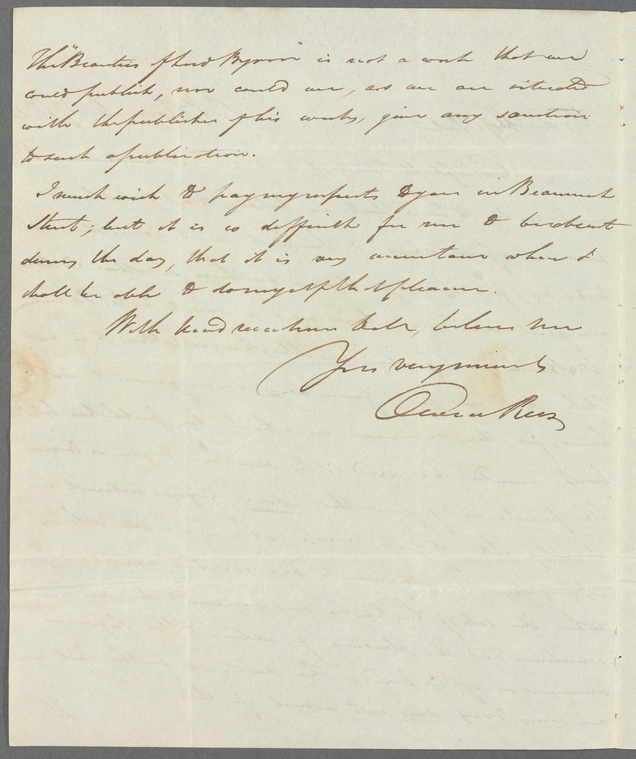 The "Beauties of Lord Byron" is not a work that we
could publish, nor could we, as we are situated
with the publisher of his works, give any sanction
to such a publication.
I much wish to pay my respects to you in Beaumont
Street; but it is so difficult for me to be absent
during the day, that it is very uncertain when I
shall be able to do myself that pleasure.
With kind believe me
Yours very sincerely
Owen Rees